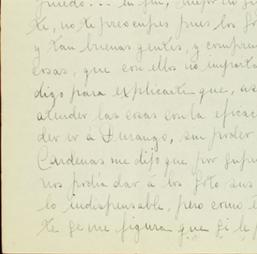 puedo... en fin, mejor en ju
te, no te preocupes pues los So
y tan buena gente, y compren
cosas, que con ellos no importa
digo para explicarte que, as
atender las cosas con la eficac
der ir á Durango, sin poder
Cardenas me dijo que por supu
nos podía dar á los Soto sus
lo indispensable, pero como e
te se me figura que si le p